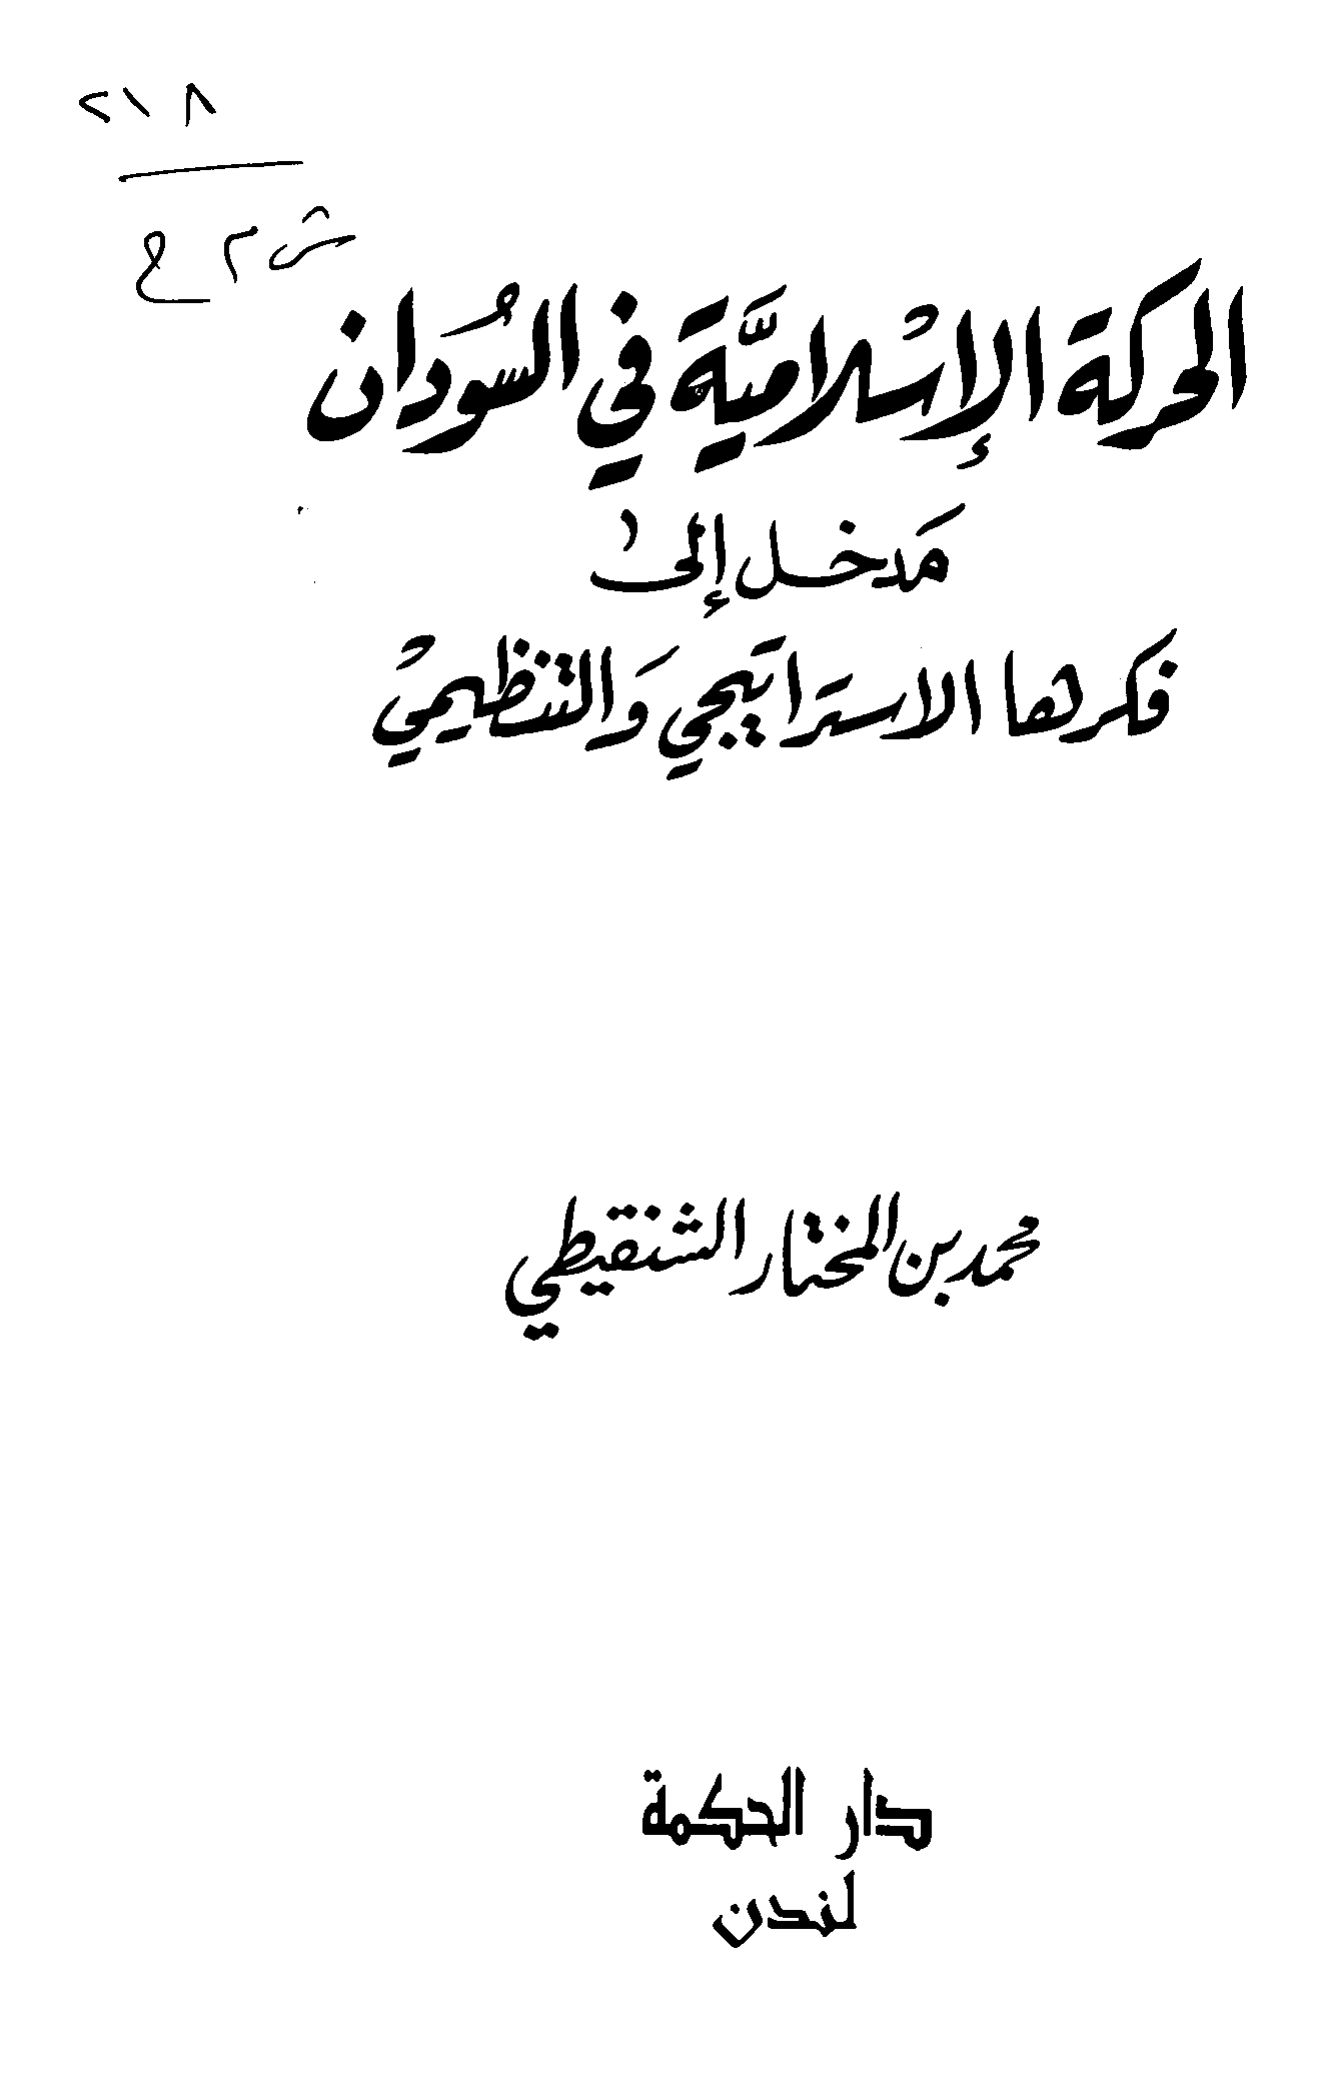 ٢١٨
ش ٢ ح
الحركة الإسْلاميَّة في السُودَان
مَدخل إلى
فكرها الاستراتيجي وَالتنظيميْ
محمد بن المختار الشنقيطي
دار الحكمة
لندن